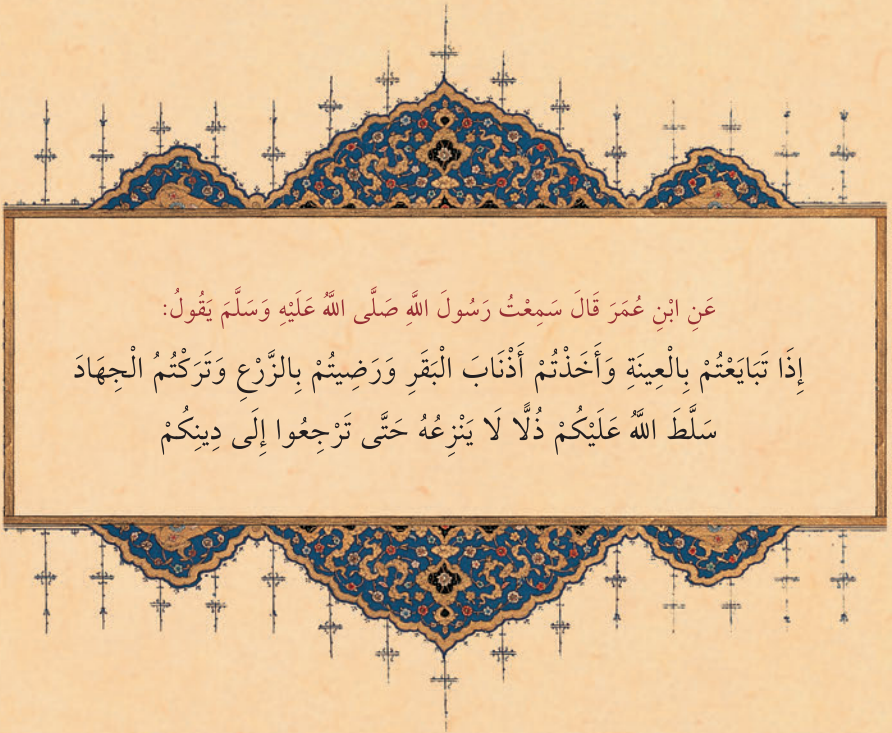 عَنِ ابْنِ عُمَرَ قَالَ سَمِعْتُ رَسُولَ اللَّهِ صَلَّى اللَّهُ عَلَيْهِ وَسَلَّمَ يَقُولُ:
إِذَا تَبَايَعْتُمْ بِالْعِينَةِ وَأَخَذْتُمْ أَذْنَابَ الْبَقَرِ وَرَضِيتُمْ بِالزَّرْعِ وَتَرَكْتُمُ الْجِهَادَ
سَلَّطَ اللَّهُ عَلَيْكُمْ ذُلًّا لَا يَنْزِعُهُ حَتَّى تَرْجِعُوا إِلَى دِينِكُمْ